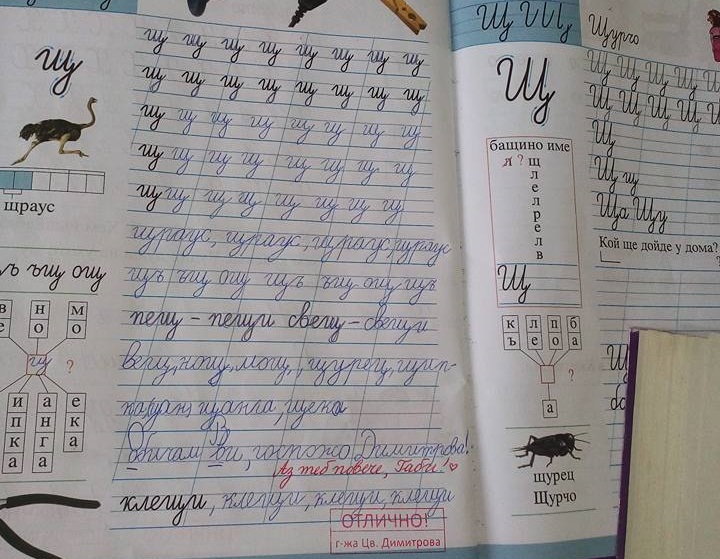 щ
щраус
щъ ъщ ощ
в но мо
е
щ ?
и а е
п н ка
к г
а а
щ щ щ щ щ щ щ щ
щ щ щ щ щ щ щ щ
щ щ щ щ щ щ щ щ
щ щ щ щ щ щ щ щ
щ щ щ щ щ щ щ щ
щраус, щраус, щраус, щраус
щъ ъщ ощ щъ ъщ ощ щъ
пещ – пещи свещ – свещи
вещ, нощ, мощ, щурец, щип-
ка, щанга, щека
Обичам Ви, госпожо Димитрова!
Аз теб повече, Габи!
клещи, клещи, клещи, клещи
ОТЛИЧНО!
г-жа Цв. Димитрова
Щ
Щ
бащино име
л ? щ
л
е
л
р
е
л
в
Щ
к л п б
ъ е о а
?
а
щурец
Щурчо
Щурчо
Щ Щ Щ Щ Щ
Щ Щ Щ Щ Щ
Щ
Щ щ
Ща Щу
Кой ще дойде у дома?